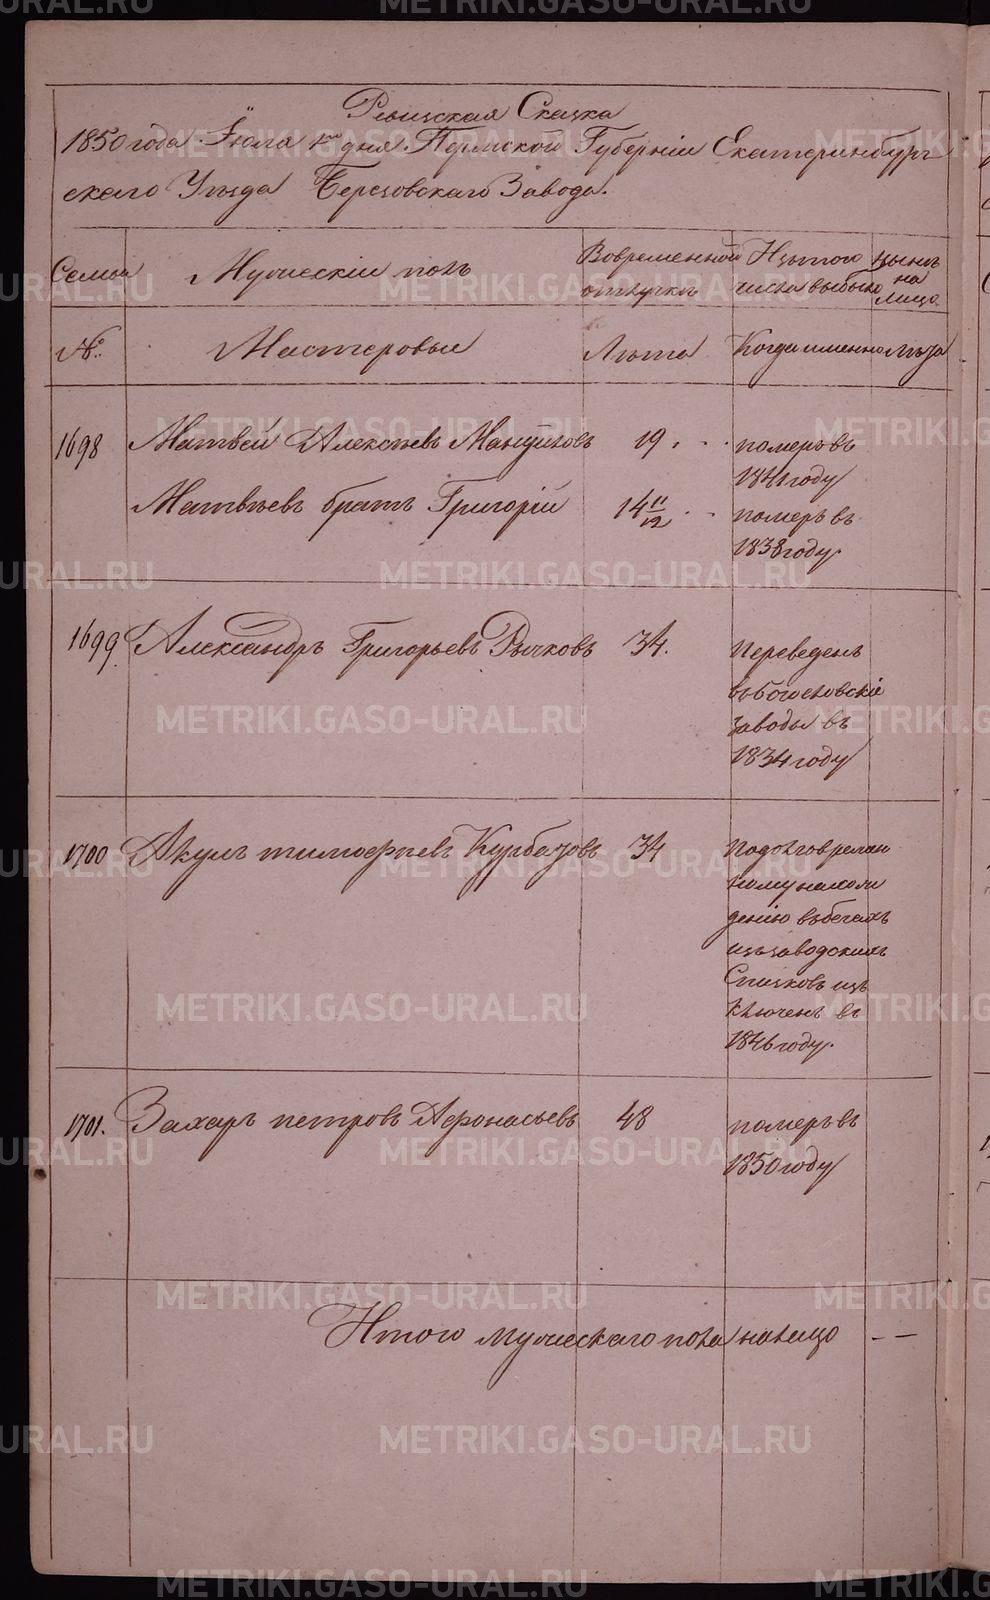 Ревизская Сказка
1850 года Іюля 1го дня Пермской Губерніи Екатеринбург
скаго Уѣзда Березовскаго Завода.
Семьи Мужескій полъ Вовременной Изтого Нынѣ
отлучкѣ числа выбыло на
Лицо
№: Мастеровые Лѣта Когда именно Лѣта
1698 Матвей Алексѣевъ 19 померъ въ
1841 году
Матвѣевъ братъ Григорій 14 11/12 померъ въ
1838 году.
1699 Александръ Григорьевъ Рычковъ 34. Переведенъ
въ Богословскіе
заводы въ
1834 году
1700 Акулъ тимофѣевъ Курбатовъ 34 Подолговремен
ному нахож
денію въбегахъ
иззаводскихъ
Списковъ из
ключенъ въ
1846 году.
1701. Захаръ петровъ Афонасьевъ 48 померъ въ
1850 году
Итого мужескаго пола налицо — —
METRIKI.GASO-URAL.RU